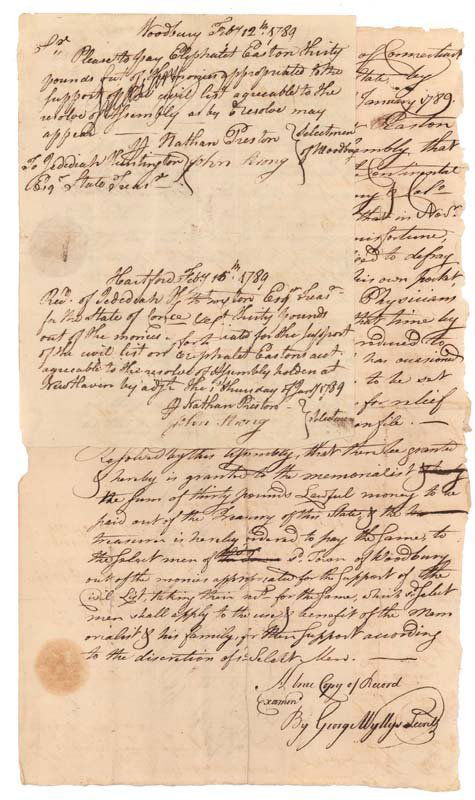 Woodbury Feby 12th 1789
Sr
Please to pay Eliphalet Easton thirty
pounds out of the monies appropriated to the
support of the civil list agreeable to the
resolve of Assembly as by resolve may
appear
Nathan Preston
John Strong
Selectmen
of Woodbury
To Jedediah Huntington
Esqr State Treasr
Hartford Feby 16th 1789
Recd of Jedediah Huntington Esqr Treasr
for the State of Connect thirty pounds
out of the monies for the support
of the civil list on Eliphalet Eastons acct
agreeable to the resolve of Assembly holden at
New Haven by adjt the Thursday of Jany 1789
Nathan Preston
John Strong
Selectmen
of Connecticut
State, by
January 1789.
Easton
Assembly that
Continental
that in Novr
misfortune
to defray
his own pocket,
Physicians
that time by
has occasioned
to be set
for relief
on file.
Resolved by this Assembly, that there be granted
& hereby is granted to the memorialist
the sum of thirty pounds Lawful money to be
paid out of the Treasury of this State, & the
treasurer is hereby ordered to pay the same, to
the Select men of sd Town of Woodbury
out of the monies appropriated for the Support of the
Civil List taking their rect for the Same, which sd Select
men shall apply to the use & benefit of the Mem
orialist & his family for their Support according
to the discretion of sd Select Men.
A true Copy of Record
Examind
By George Wyllys Secrety